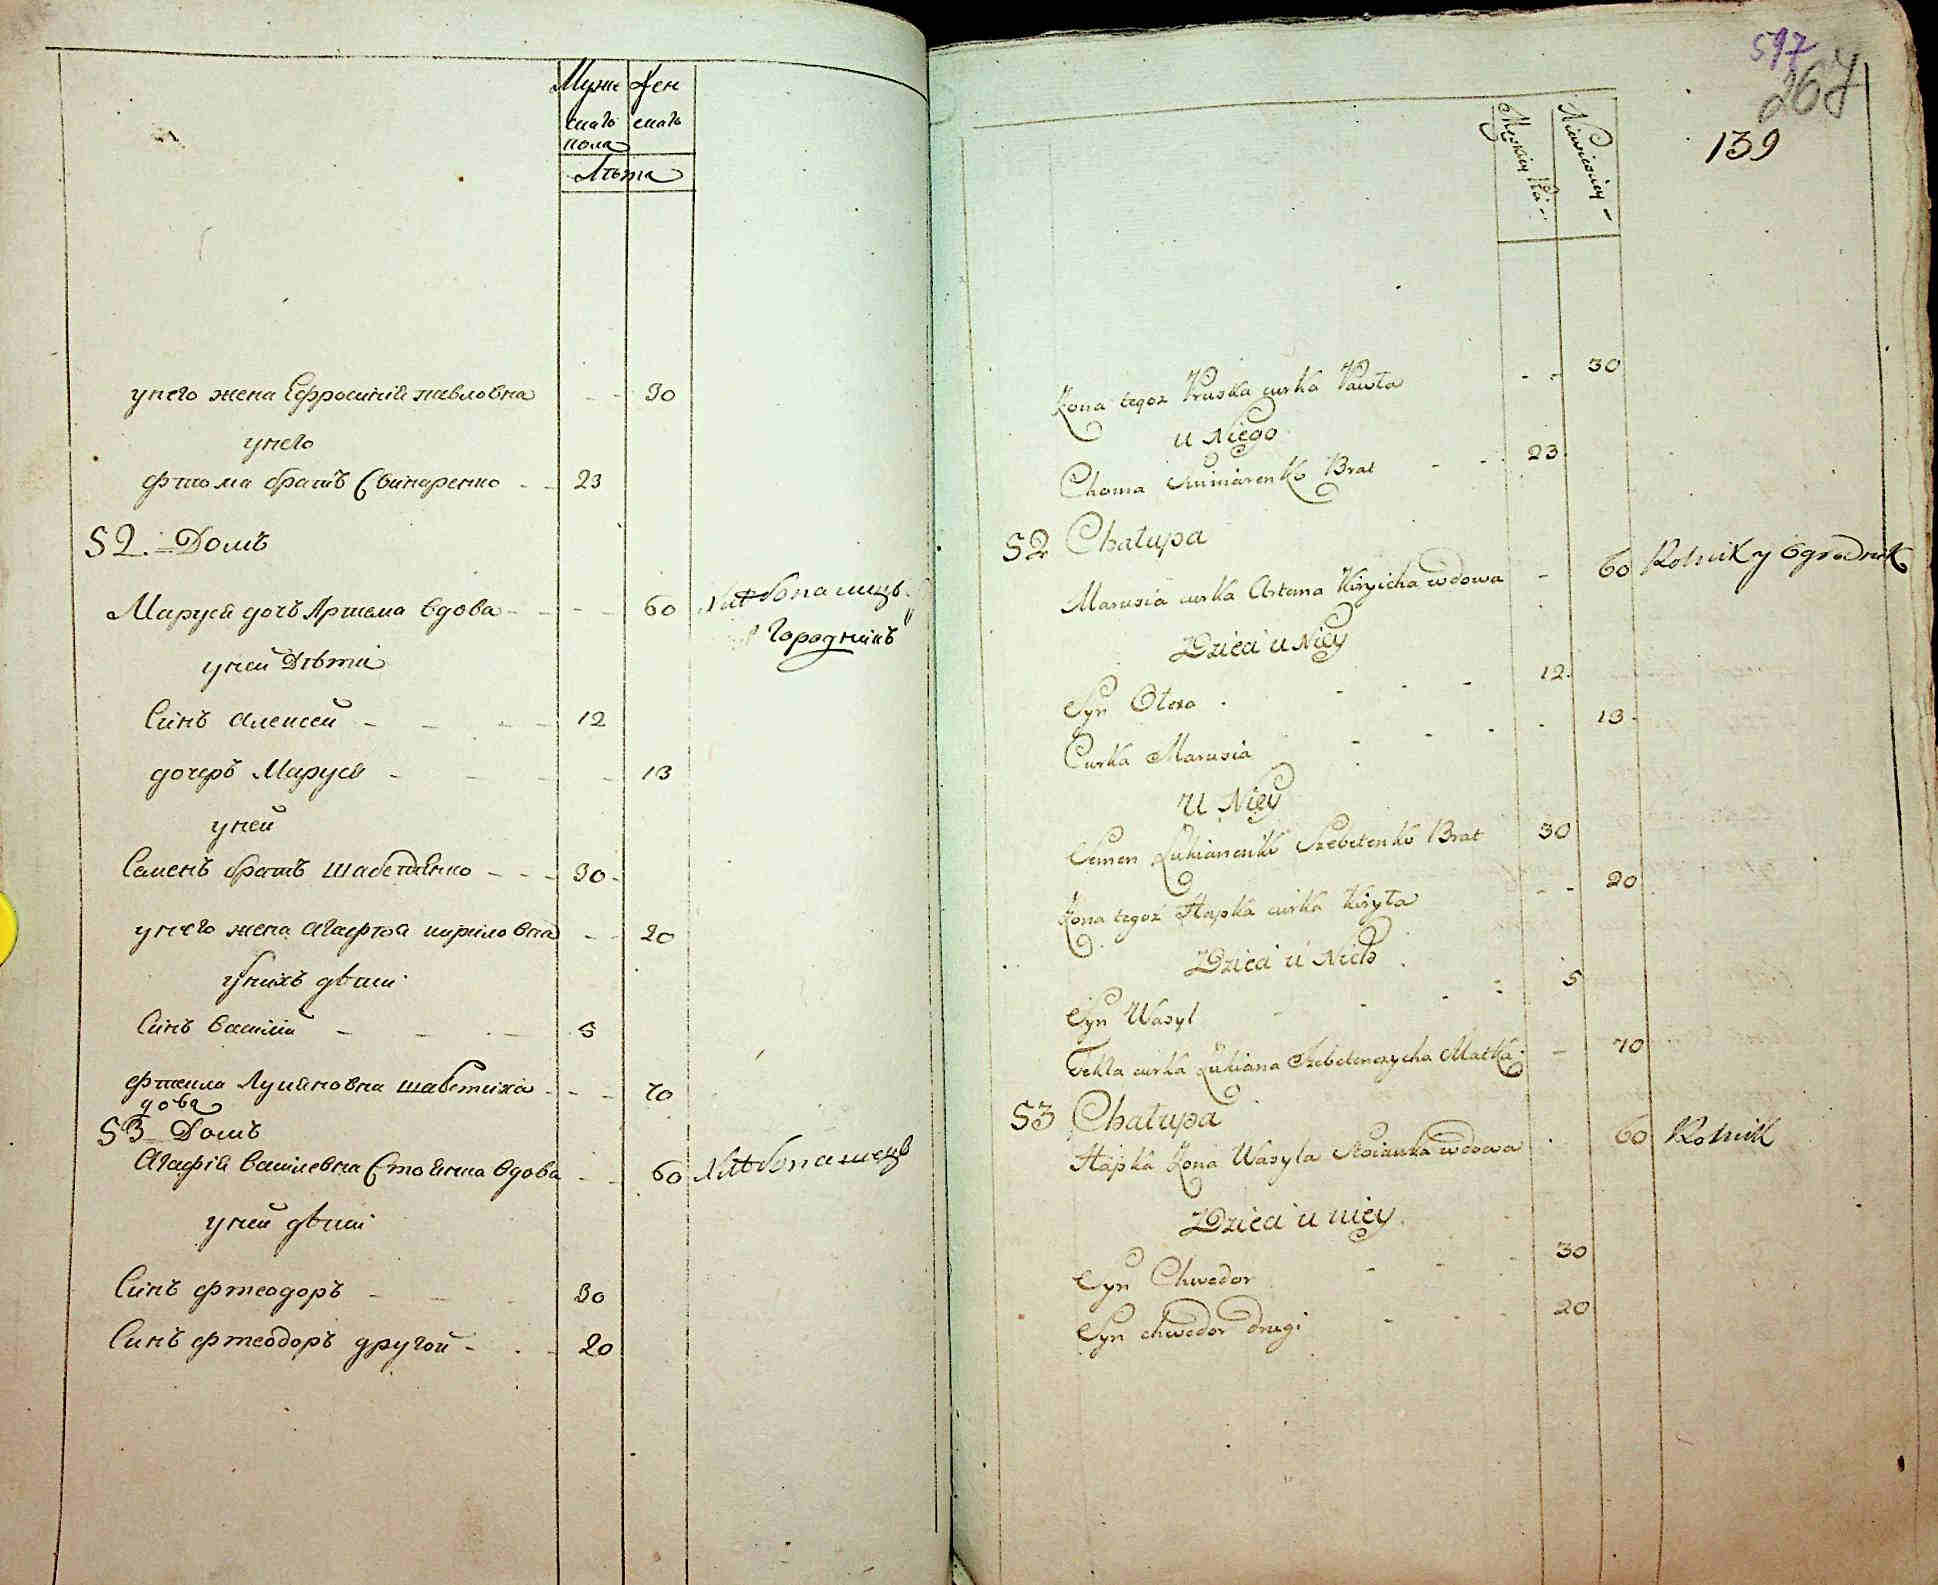 Муже Жен
скаго скаго
пола
Лѣта
унего жена Ефросиния павловна - - 30
унего
фтома братъ Свинаренко - - 23
52. Домъ
Маруся дочъ Артема вдова - - - 60 Хлѣбопашецъ
и Городникъ
уней Дѣти
Синъ алексей - - - - 12
дочеръ Маруся - - - - 13
уней
Семенъ братъ шабетенко - - - 30
унего жена агафия кирило вна - - 20
Унихъ дѣти
Синъ василий - - - 5
фтекла Лукияновна шабетиха - - - 70
дова
53 Домъ
Агафия василевна Стоянка вдова - - 60 Хлѣбопашецъ
уней дѣти
Синъ фтеодоръ - - - 30
Синъ фтеодоръ другой - - - 20
517
267
139
Męskiey Niewieściey
Żona tegoż Pruska curka Pawła - - 30
u Niego
Choma Swinarenko Brat - - 23
52 Chałupa
Marusia curka Artema Kirzicha wdowa - 60 Rolnik y Ogrodnik
Dzieci u Niey
Syn Olexa - - - 12
Curka Marusia - - - - 13
U Niey
Semen Łukianenko Szebetenko Brat 30
Żona tegoż Hapka curka Kiryła - - 20
Dzieci u Nich
Syn Wasyl - - - 5
Tekla curka Łukiana Szebetenczycha Matka - 70
53 Chałupa
Hapka Żona Wasyla Stoianka wdowa - 60 Rolnik
Dzieci u niey
Syn Chwedor - - - 30
Syn chwedor drugi - - - 20